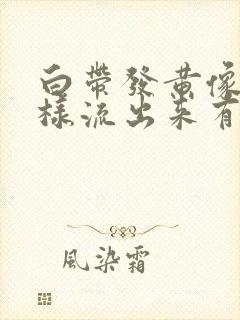 白帶發黃像
樣流出來有
風染霜